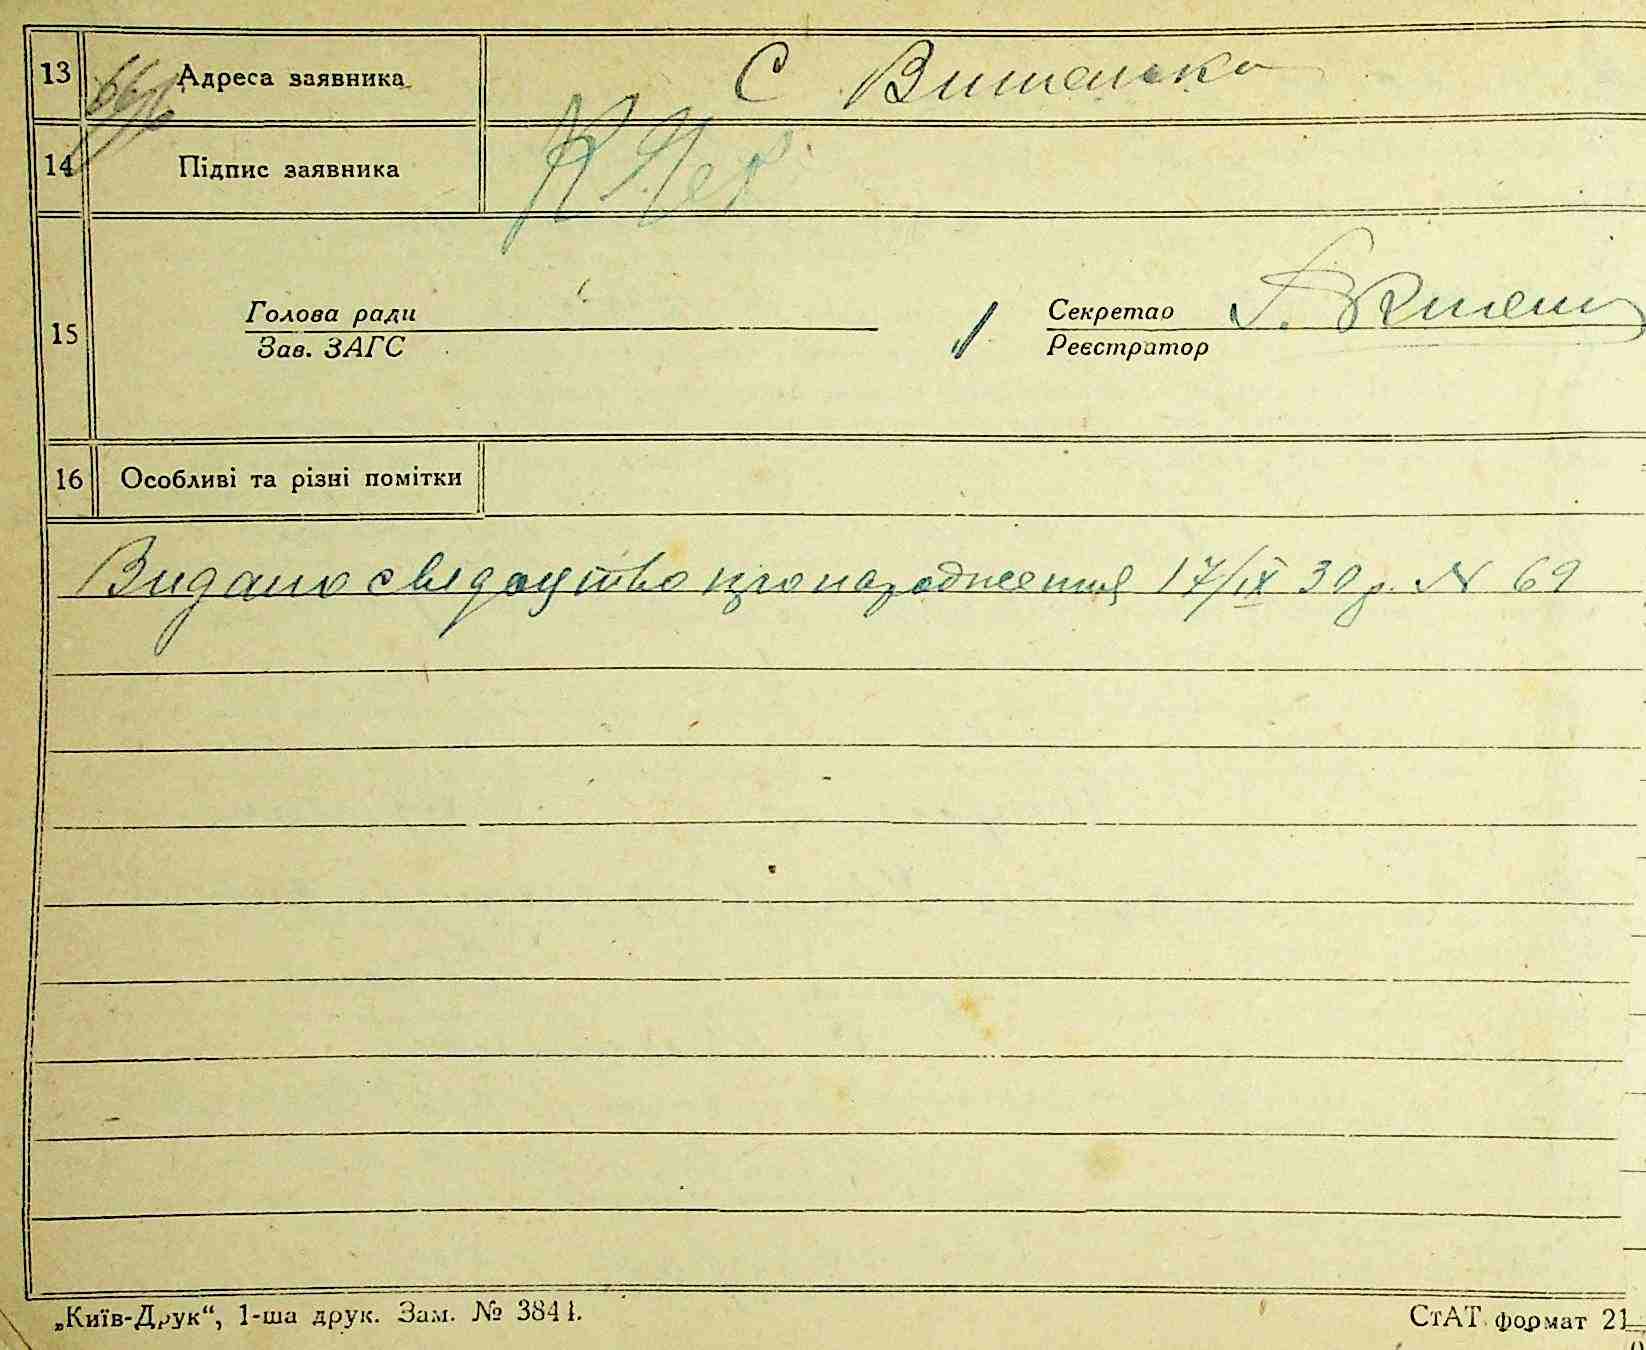 13 Адреса заявника С Вишенька
14 Підпис заявника
15 Голова ради
Зав. ЗАГС
Секретар
Реєстратор
16 Особливі та різні помітки
Видано свидоцтво про народження 17/IX 30 р. № 69
„Київ-Друк“, 1-ша друк. Зам. № 3841.
СтАТ. формат 21